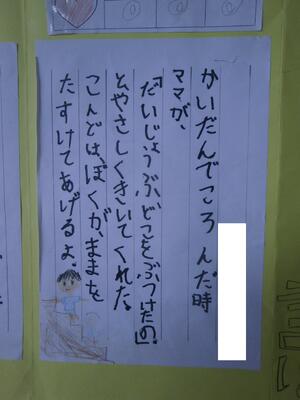 かいだんでころんだ時
ママが、
「だいじょうぶ。どこをぶつけたの」
とやさしくきいてくれた。
こんどは、ぼくが、ままを
たすけてあげるよ。